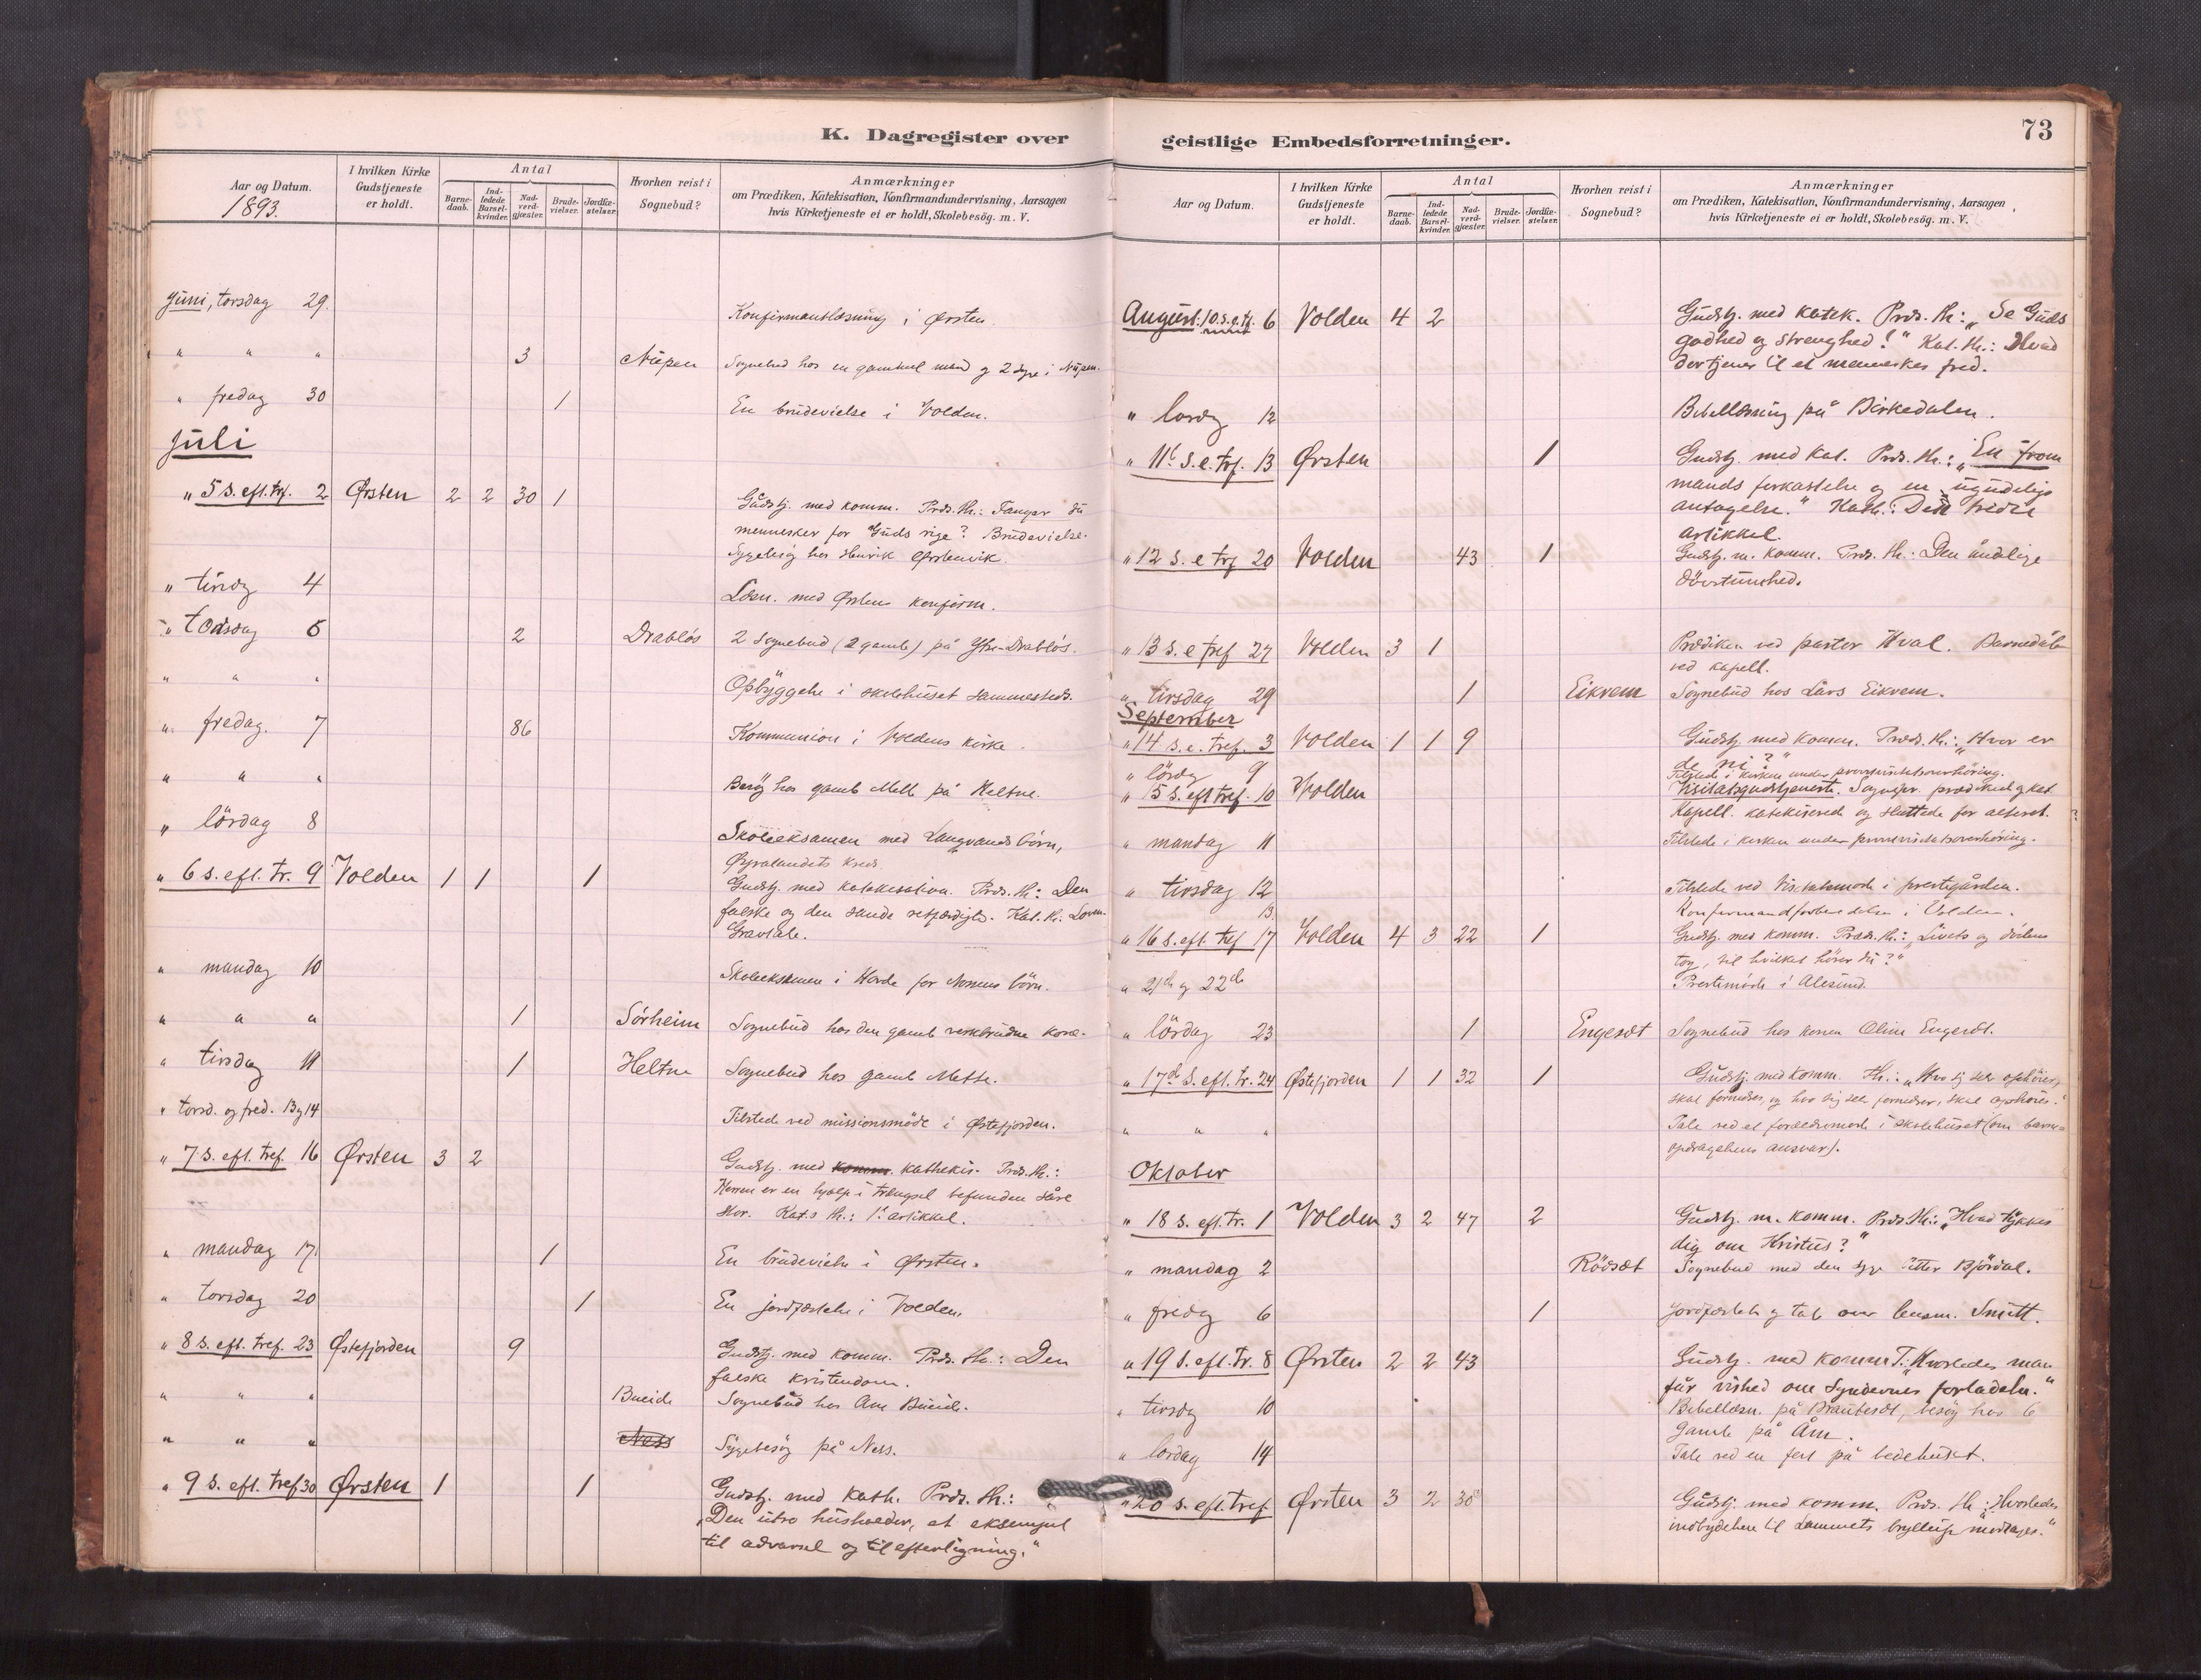 K. Dagregister over
Aar og Datum.
1893.
I hvilken Kirke
Gudstjeneste
er holdt.
Antal
Barne-
daab.
Ind-
ledede
Barsel-
kvinder.
Nad-
verd-
gjæster.
Brude-
vielser.
Jordfæ-
stelser.
Hvorhen reist i
Sognebud?
Anmærkninger
om Prædiken, Katekisation, Konfirmandundervisning, Aarsagen
hvis Kirketjeneste ei er holdt, Skolebesög. m. V.
Juni, torsdag 29. Konfirmantlæsning i Ørsten.
" " " 3 Nupen Sognebud hos en gammel mand og 2 syge i Nupen.
" fredag 30 1 En brudevielse i Volden.
Juli
" 5 S. eft. trf. 2 Ørsten 2 2 30 1 Gudstj. med komm. Præd. th.: Fanger du
mennesker for Guds rige? Brudevielse.
Sygebesög hos Henrik Ørstenvik.
" tirsdg 4 Læsn. med Ørstens konfirm.
" Torsdag 6 2 Drablös 2 Sognebud (2 gamle) på Ytre-Drablös.
" " " Opbyggelse i skolehuset sammesteds.
" fredag. 7 86 Kommunion i Voldens kirke.
" " " Besög hos gamle Mette på Heltne.
" lördag 8 Skoleeksamen med Langvands börn,
Øyralandets kreds
" 6 s. eft. tr. 9 Volden 1 1 1 Gudstj. med katekisation. Præd. th.: Den
falske og den sande retfærdighed. Kat. th.: Loven.
Gravtale.
" mandag 10 Skoleeksamen i Horde for Nonens börn.
" " " 1 Sörheim Sognebud hos den gamle verkbrudne kone.
" tirsdag 11 1 Heltne Sognebud hos gamle Mette.
" torsd. og fred. 13 og 14 Tilstede ved missionsmöde i Østefjorden.
" 7 s. eft. tref. 16 Ørsten 3 2 Gudstj. med komm. kathekis. Præd. th.:
Herren er en hjælp i trængsel befunden såre
stor. Kat.s th.: 1. artikkel.
" mandag 17. 1 En brudevielse i Ørsten.
" torsdag 20 1 En jordfæstelse i Volden.
" 8 s. eft. tref. 23 Østefjorden 9 Gudstj. med komm. Præd. th.: Den
falske kristendom.
" " " Bueide Sognebud hos Ane Bueide.
" " " Ness Sygebesög på Ness.
" 9 s. eft. tref 30 Ørsten 1 1 Gudstj. med kath. Præd. th.:
"Den utro husholder, et eksempel
til advarsel og til efterligning."
geistlige Embedsforretninger.
73
Aar og Datum.
I hvilken Kirke
Gudstjeneste
er holdt.
Antal
Barne-
daab.
Ind-
ledede
Barsel-
kvinder.
Nad-
verd-
gjæster.
Brude-
vielser.
Jordfæ-
stelser.
Hvorhen reist i
Sognebud?
Anmærkninger
om Prædiken, Katekisation, Konfirmandundervisning, Aarsagen
hvis Kirketjeneste ei er holdt, Skolebesög. m. V.
August. 10. s. e. tr. 6 Volden 4 2 Gudstj. med katek. Præd. th.: "Se Guds
godhed og strenghed!" Kat. th.: Hvad
der tjener til et menneskes fred.
" lördg 12 Bibellæsning på Birkedalen.
" 11t. S. e. trf. 13 Ørsten 1 Gudstj. med Kat. Præd. th.: "En from
mands forkastelse og en ugudeligs
antagelse." Kath.: Den tredie
artikkel.
" 12 s. e trf 20 Volden 43 1 Gudstj. m. komm. Præd. th.: Den åndelige
dövstumhed.
" 13 s. e tref 27 Volden 3 1 Prædiken ved pastor Hval. Barnedåb
ved kapell.
" tirsdag 29 1 Eikrem Sognebud hos Lars Eikrem.
September
" 14 s. e. tref. 3 Volden 1 1 9 Gudstj. med komm. Præd. th.: "Hvor er
de ni?"
" lördg 9 Tilstede i kirken under provsivisitatsoverhöring.
" 15 s. eft tref. 10 Volden Visitatsgudstjeneste. Sognepr. prædiked og kat.
Kapell. katekiserede og sluttede for alteret.
" mandag 11 Tilstede i kirken under provsivisitatsoverhöring.
" tirsdag 12 Tilstede ved Visitatsmöde i prestegården.
13. Konfirmandforberedelse i Volden.
" 16 s. eft. tref 17 Volden 4 3 22 1 Gudstj. med komm. Præd. th.: "Livets og dödens
tog, til hvilket hörer du?"
" 21de og 22de Prestemöde i Alesund.
" lördag 23 1 Engesæt Sognebud hos konen Oline Engesæt.
" 17de s. eft. tr. 24 Østefjorden 1 1 32 1 Gudstj. med komm. Th.: "Hvo sig selv ophöier,
skal fornedres, og hvo sig selv fornedrer, skal ophöies."
" " " Tale ved et forældremöde i skolehuset (om barne-
opdragelsens ansvar).
Oktober
" 18 s. eft. tr. 1 Volden 3 2 47 2 Gudstj. m. komm. Præd. Th.: "Hvad tykkes
dig om Kristus?"
" mandag 2 Rödsæt Sognebud med den syge Petter Björdal.
" fredg 6 1 Jordfæstelse og tale over lensm. Smitt.
" 19 s. eft. tr. 8 Ørsten 2 2 43 Gudstj. med komm T.: "Hvorledes man
får vished om Syndernes forladelse."
" tirsdg 10 Bibellæsn. på Brautesæt, besög hos 6
gamle på Åm.
" lördag 14 Tale ved en fest på bedehuset.
" 20 s. eft. tref. Ørsten 3 2 38 Gudstj. med komm. Præd. th.: "Hvorledes
indbydelsen til Lammets bryllup modtages."